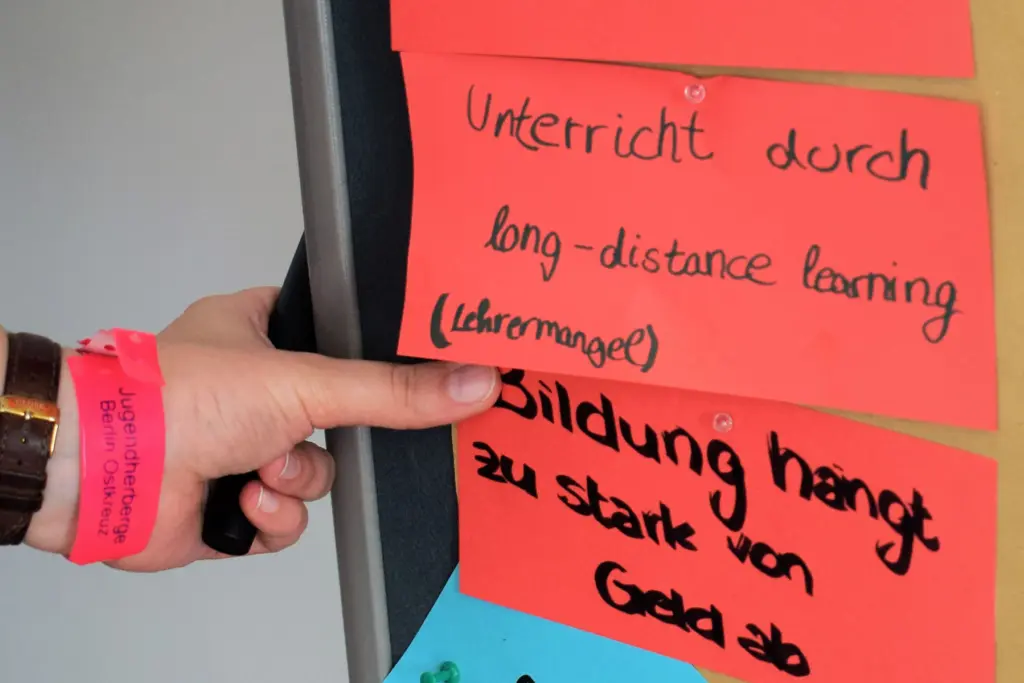 Unterricht durch
long-distance learning
(Lehrermangel)
Bildung hängt
zu stark von
Geld ab
Jugendherberge
Berlin Ostkreuz